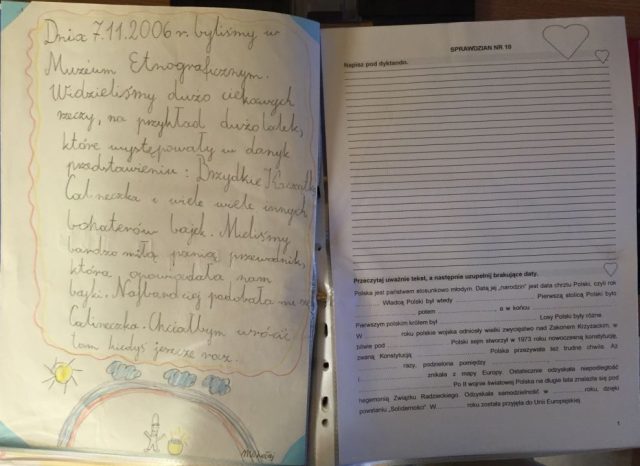 Dnia 7.11.2006 r. byliśmy w
Muzeum Etnograficznym.
Widzieliśmy dużo ciekawych
rzeczy, na przykład dużo lalek,
które występowały w danym
przedstawieniu: Brzydkie Kaczątko
Calineczka i wiele wiele innych
bohaterów bajek. Mieliśmy
bardzo miłą panią przewodnik,
która opowiadała nam
bajki. Najbardziej podobała mi się
Calineczka. Chciałbym wrócić
tam kiedyś jeszcze raz.
Mikołaj
SPRAWDZIAN NR 10
Napisz pod dyktando.
Przeczytaj uważnie tekst, a następnie uzupełnij brakujące daty.
Polska jest państwem stosunkowo młodym. Datą jej „narodzin” jest data chrztu Polski, czyli rok
Władcą Polski był wtedy . Pierwszą stolicą Polski było
, potem , a w końcu
Pierwszym polskim królem był . Losy Polski były różne.
W roku polskie wojska odniosły wielkie zwycięstwo nad Zakonem Krzyżackim, w
bitwie pod . Polski sejm stworzył w 1973 roku nowoczesną konstytucję,
zwaną Konstytucją . Polska przeżywała też trudne chwile. Aż
razy, podzielona pomiędzy
i , znikała z mapy Europy. Ostatecznie odzyskała niepodległość
. Po II wojnie światowej Polska na długie lata znalazła się pod
hegemonią Związku Radzieckiego. Odzyskała samodzielność w roku, dzięki
powstaniu „Solidarności”. W roku została przyjęta do Unii Europejskiej.
1